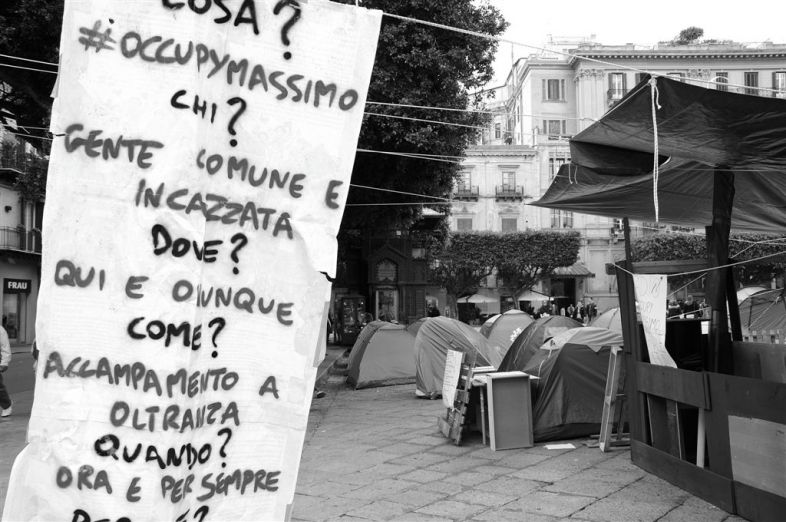 COSA?
#OCCUPYMASSIMO
CHI?
GENTE COMUNE E
INCAZZATA
DOVE?
QUI E OVUNQUE
COME?
ACCAMPAMENTO A
OLTRANZA
QUANDO?
ORA E PER SEMPRE
FRAU